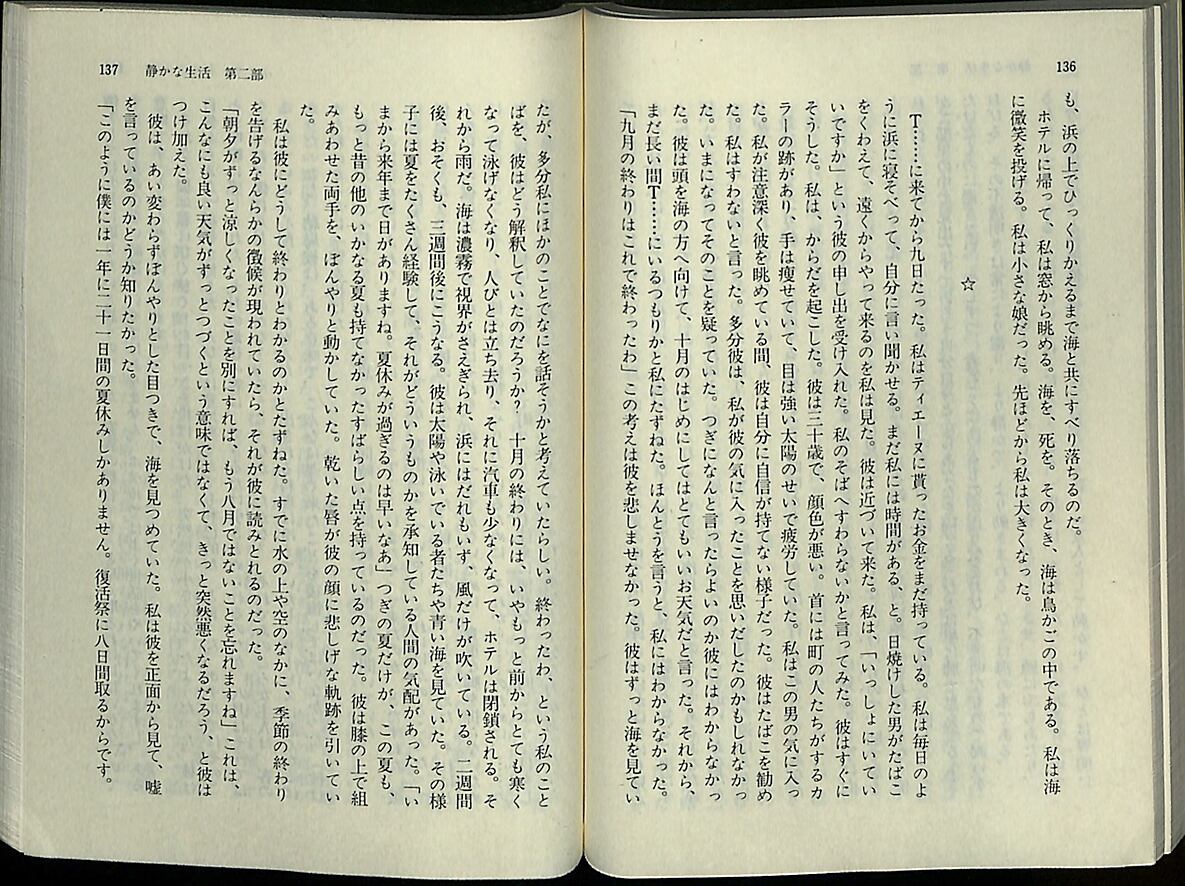 136
も、浜の上でひっくりかえるまで海と共にすべり落ちるのだ。
ホテルに帰って、私は窓から眺める。海を、死を。そのとき、海は鳥かごの中である。私は海
に微笑を投げる。私は小さな娘だった。先ほどから私は大きくなった。
☆
T……に来てから九日たった。私はティエーヌに貰ったお金をまだ持っている。私は毎日のよ
うに浜に寝そべって、自分に言い聞かせる。まだ私には時間がある、と。日焼けした男がたばこ
をくわえて、遠くからやって来るのを私は見た。彼は近づいて来た。私は、「いっしょにいてい
いですか」という彼の申し出を受け入れた。私のそばへすわらないかと言ってみた。彼はすぐに
そうした。私は、からだを起こした。彼は三十歳で、顔色が悪い。首には町の人たちがするカ
ラーの跡があり、手は痩せていて、目は強い太陽のせいで疲労していた。私はこの男の気に入っ
た。私が注意深く彼を眺めている間、彼は自分に自信が持てない様子だった。彼はたばこを勧め
た。私はすわないと言った。多分彼は、私が彼の気に入ったことを思いだしたのかもしれなかっ
た。いまになってそのことを疑っていた。つぎになんと言ったらよいのか彼にはわからなかっ
た。彼は頭を海の方へ向けて、十月のはじめにしてはとてもいいお天気だと言った。それから、
まだ長い間T……にいるつもりかと私にたずねた。ほんとうを言うと、私にはわからなかった。
「九月の終わりはこれで終わったわ」この考えは彼を悲しませなかった。彼はずっと海を見てい
137 静かな生活 第二部
たが、多分私にほかのことでなにを話そうかと考えていたらしい。終わったわ、という私のこと
ばを、彼はどう解釈していたのだろうか? 十月の終わりには、いやもっと前からとても寒く
なって泳げなくなり、人びとは立ち去り、それに汽車も少なくなって、ホテルは閉鎖される。そ
れから雨だ。海は濃霧で視界がさえぎられ、浜にはだれもいず、風だけが吹いている。二週間
後、おそくも、三週間後にこうなる。彼は太陽や泳いでいる者たちや青い海を見ていた。その様
子には夏をたくさん経験して、それがどういうものかを承知している人間の気配があった。「い
まから来年まで日がありますね。夏休みが過ぎるのは早いなあ」つぎの夏だけが、この夏も、
もっと昔の他のいかなる夏も持てなかったすばらしい点を持っているのだった。彼は膝の上で組
みあわせた両手を、ぼんやりと動かしていた。乾いた唇が彼の顔に悲しげな軌跡を引いてい
た。
私は彼にどうして終わりとわかるのかとたずねた。すでに水の上や空のなかに、季節の終わり
を告げるなんらかの徴候が現われていたら、それが彼に読みとれるのだった。
「朝夕がずっと涼しくなったことを別にすれば、もう八月ではないことを忘れますね」これは、
こんなにも良い天気がずっとつづくという意味ではなくて、きっと突然悪くなるだろう、と彼は
つけ加えた。
彼は、あい変わらずぼんやりとした目つきで、海を見つめていた。私は彼を正面から見て、嘘
を言っているのかどうか知りたかった。
「このように僕には一年に二十一日間の夏休みしかありません。復活祭に八日間取るからです。